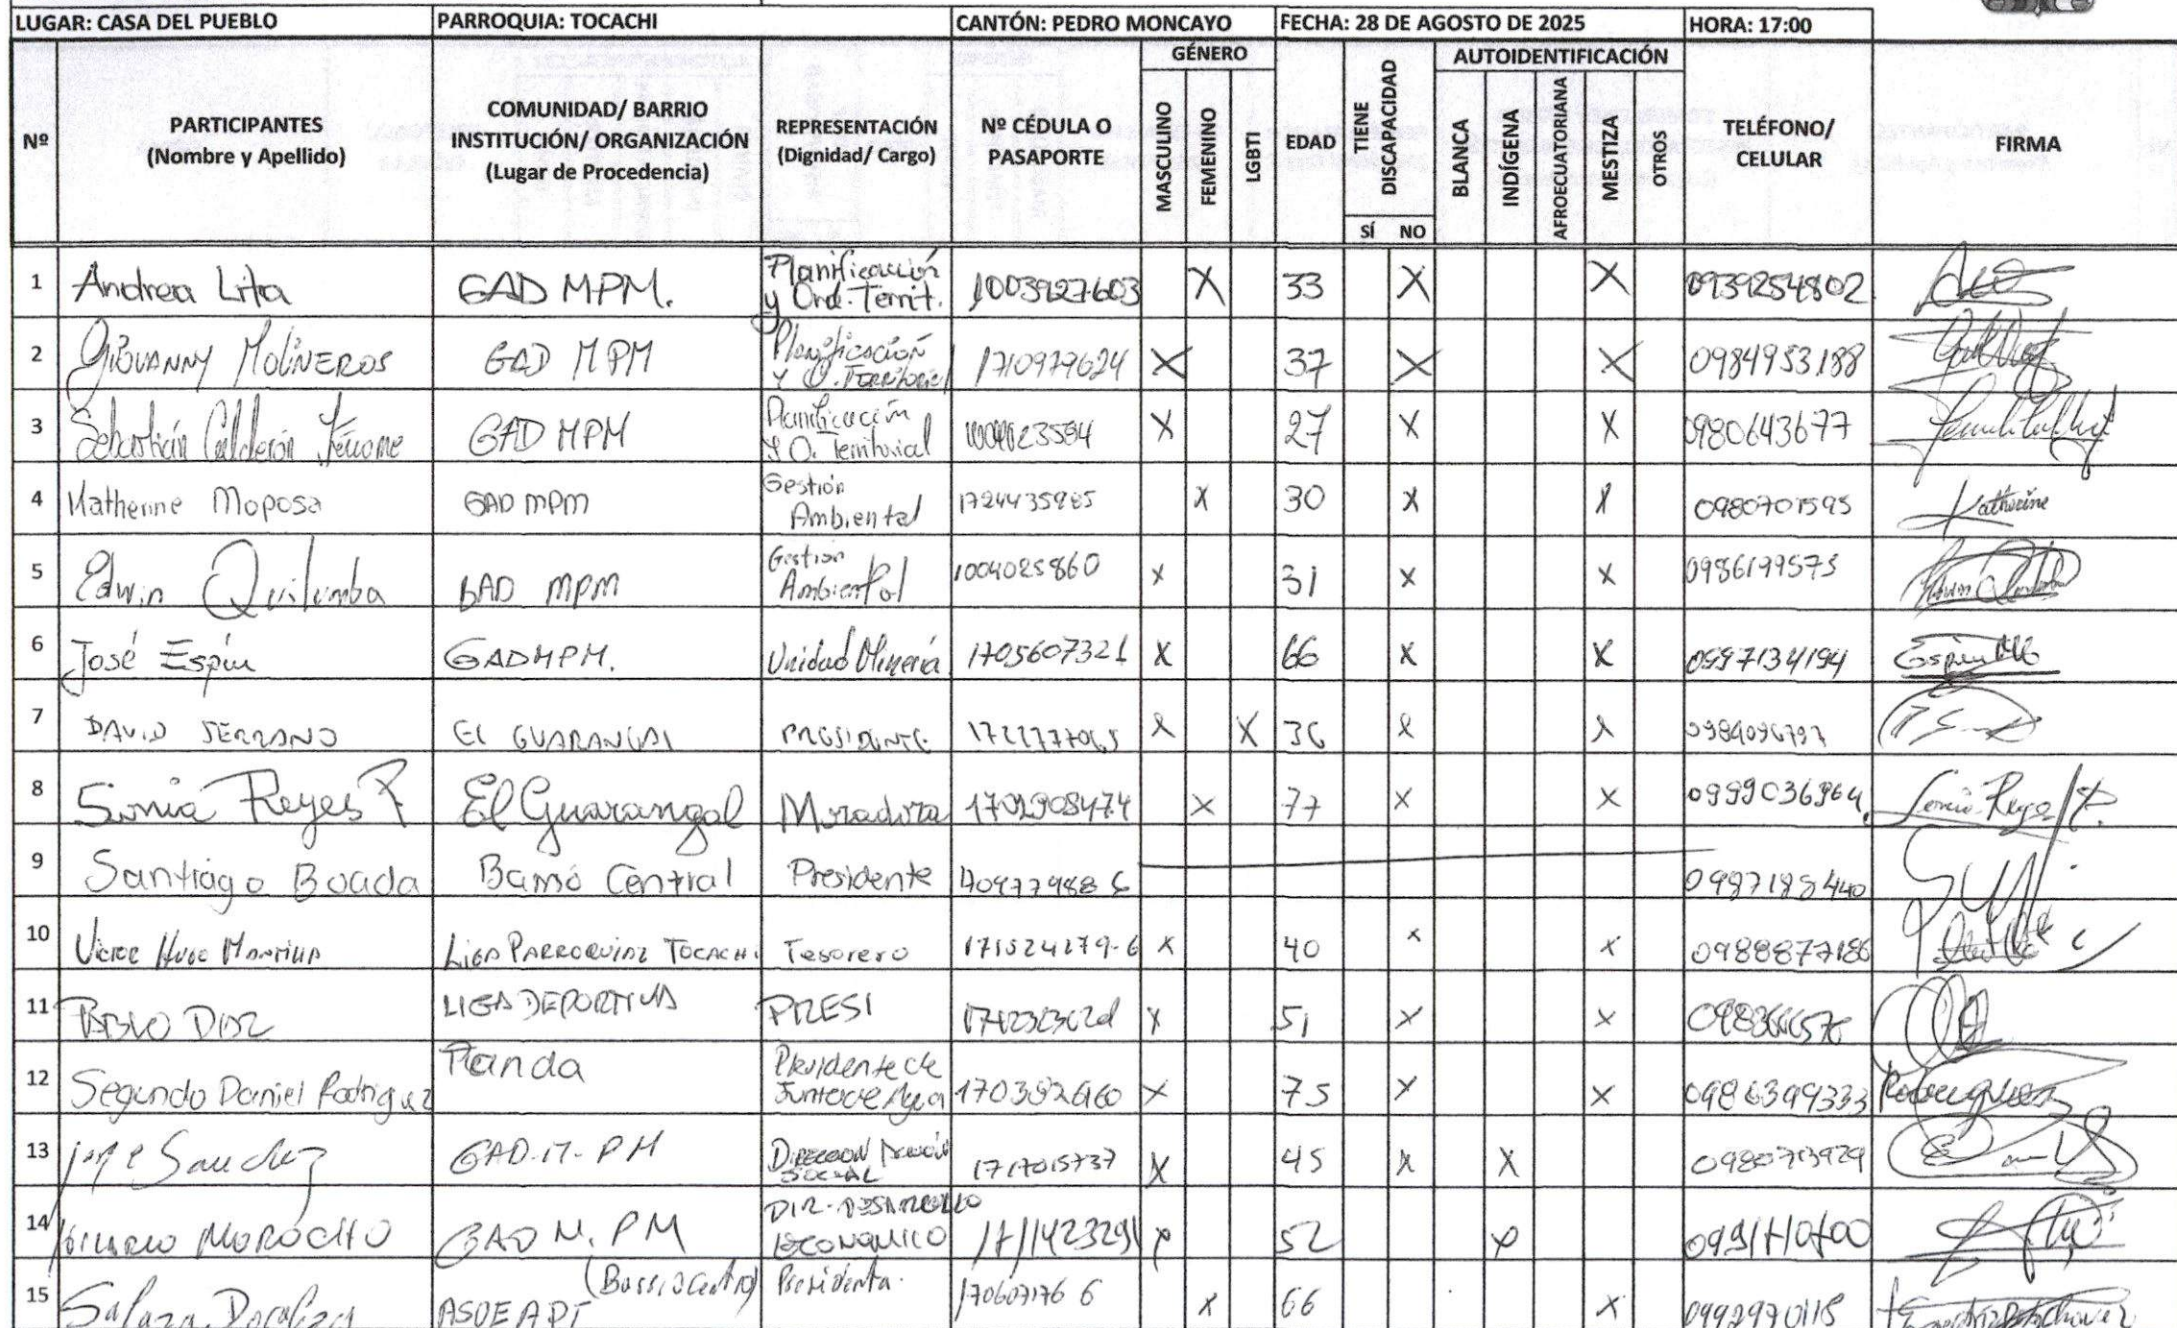 LUGAR: CASA DEL PUEBLO PARROQUIA: TOCACHI CANTÓN: PEDRO MONCAYO FECHA: 28 DE AGOSTO DE 2025 HORA: 17:00
Nº PARTICIPANTES (Nombre y Apellido) COMUNIDAD/ BARRIO INSTITUCIÓN/ ORGANIZACIÓN (Lugar de Procedencia) REPRESENTACIÓN (Dignidad/ Cargo) Nº CÉDULA O PASAPORTE GÉNERO MASCULINO FEMENINO LGBTI EDAD TIENE DISCAPACIDAD SÍ NO AUTOIDENTIFICACIÓN BLANCA INDÍGENA AFROECUATORIANA MESTIZA OTROS TELÉFONO/ CELULAR FIRMA
1 Andrea Lita GAD MPM. Planificación y Ord. Territ. 1003927603 X 33 X X 0939254802
2 GIOVANNY MOLINEROS GAD MPM Planificación y O. Territorial 1710979624 X 37 X X 0984953188
3 Sebastián Calderón GAD MPM Planificación y O. Territorial X 27 X X 0980643677
4 Katherine Moposa GAD MPM Gestión Ambiental 1724435985 X 30 X X 0980701595 Katherine
5 Edwin Quilumba GAD MPM Gestion Ambiental 1004025860 X 31 X X 0986199573
6 José Espín GADMPM. Unidad Minería 1705607321 X 66 X X 0997134194
7 DAVID SERRANO El GUARANGAL PRESIDENTE X X 36 X X
8 Sonia Reyes P. El Guarangal Moradora 1702908474 X 77 X X 0999036964 Sonia Reyes P.
9 Santiago Boada Barrio Central Presidente 0987188440
10 Victor Hugo Mantilla LIGA PARROQUIAL TOCACHI Tesorero 171524279-6 X 40 X X 0988877186
11 PABLO DIAZ LIGA DEPORTIVA PRESI X 51 X X
12 Segundo Daniel Rodriguez Tanda Presidente de Junta de Agua X 75 X X 0986399333 Rodriguez
13 Jorge Sanchez GAD-M-PM DIRECCION SOCIAL 1717015737 X 45 X X
14 MOROCHO GAD M. PM DIR. DESARROLLO ECONOMICO X 52 X
15 (Barrio Centro) Presidenta. 170607176 6 X 66 X 0992970118